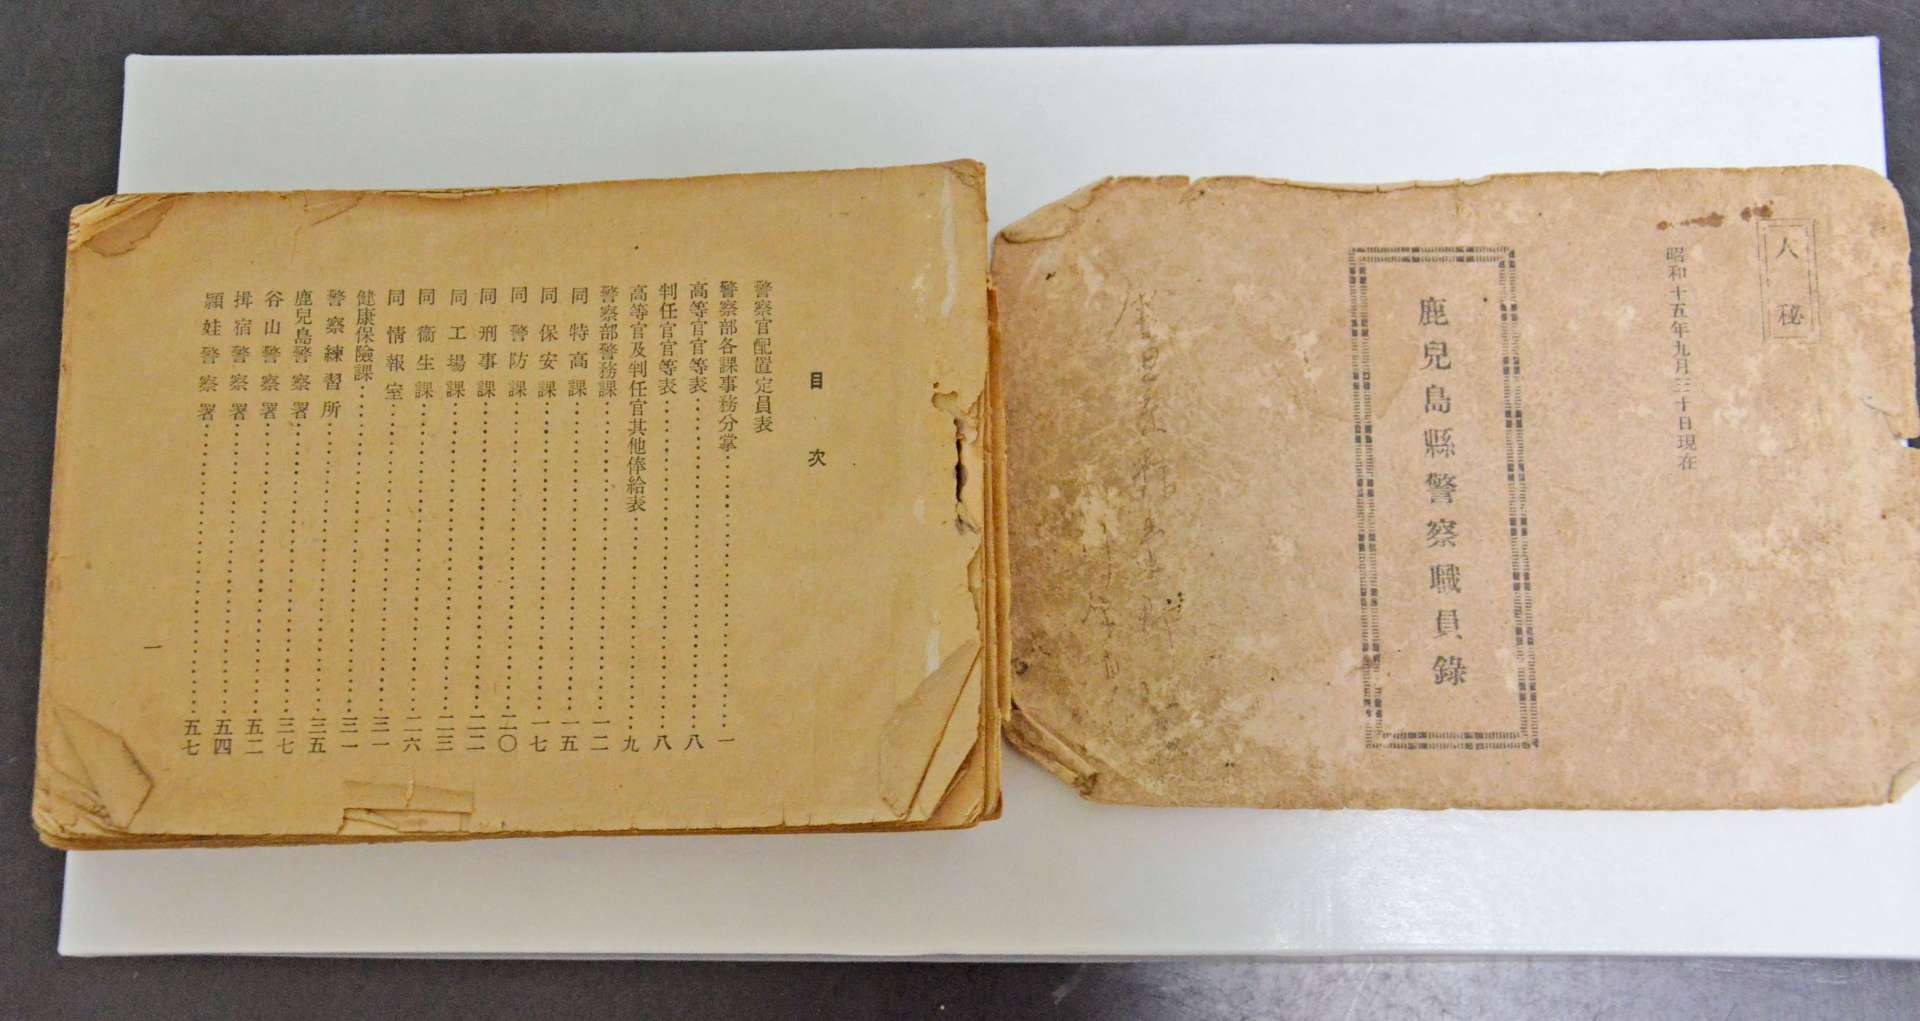 人秘
昭和十五年九月三十日現在
鹿兒島縣警察職員錄
目次
警察官配置定員表
警察部各課事務分掌……一
高等官官等表……八
判任官官等表……八
高等官及判任官其他俸給表……九
警察部警務課……一二
同特高課……一五
同保安課……一七
同警防課……二〇
同刑事課……二二
同工場課……二三
同衞生課……二六
同情報室……三一
健康保險課……三一
警察練習所……三五
鹿兒島警察署……三七
谷山警察署……五二
揖宿警察署……五四
頴娃警察署……五七
一